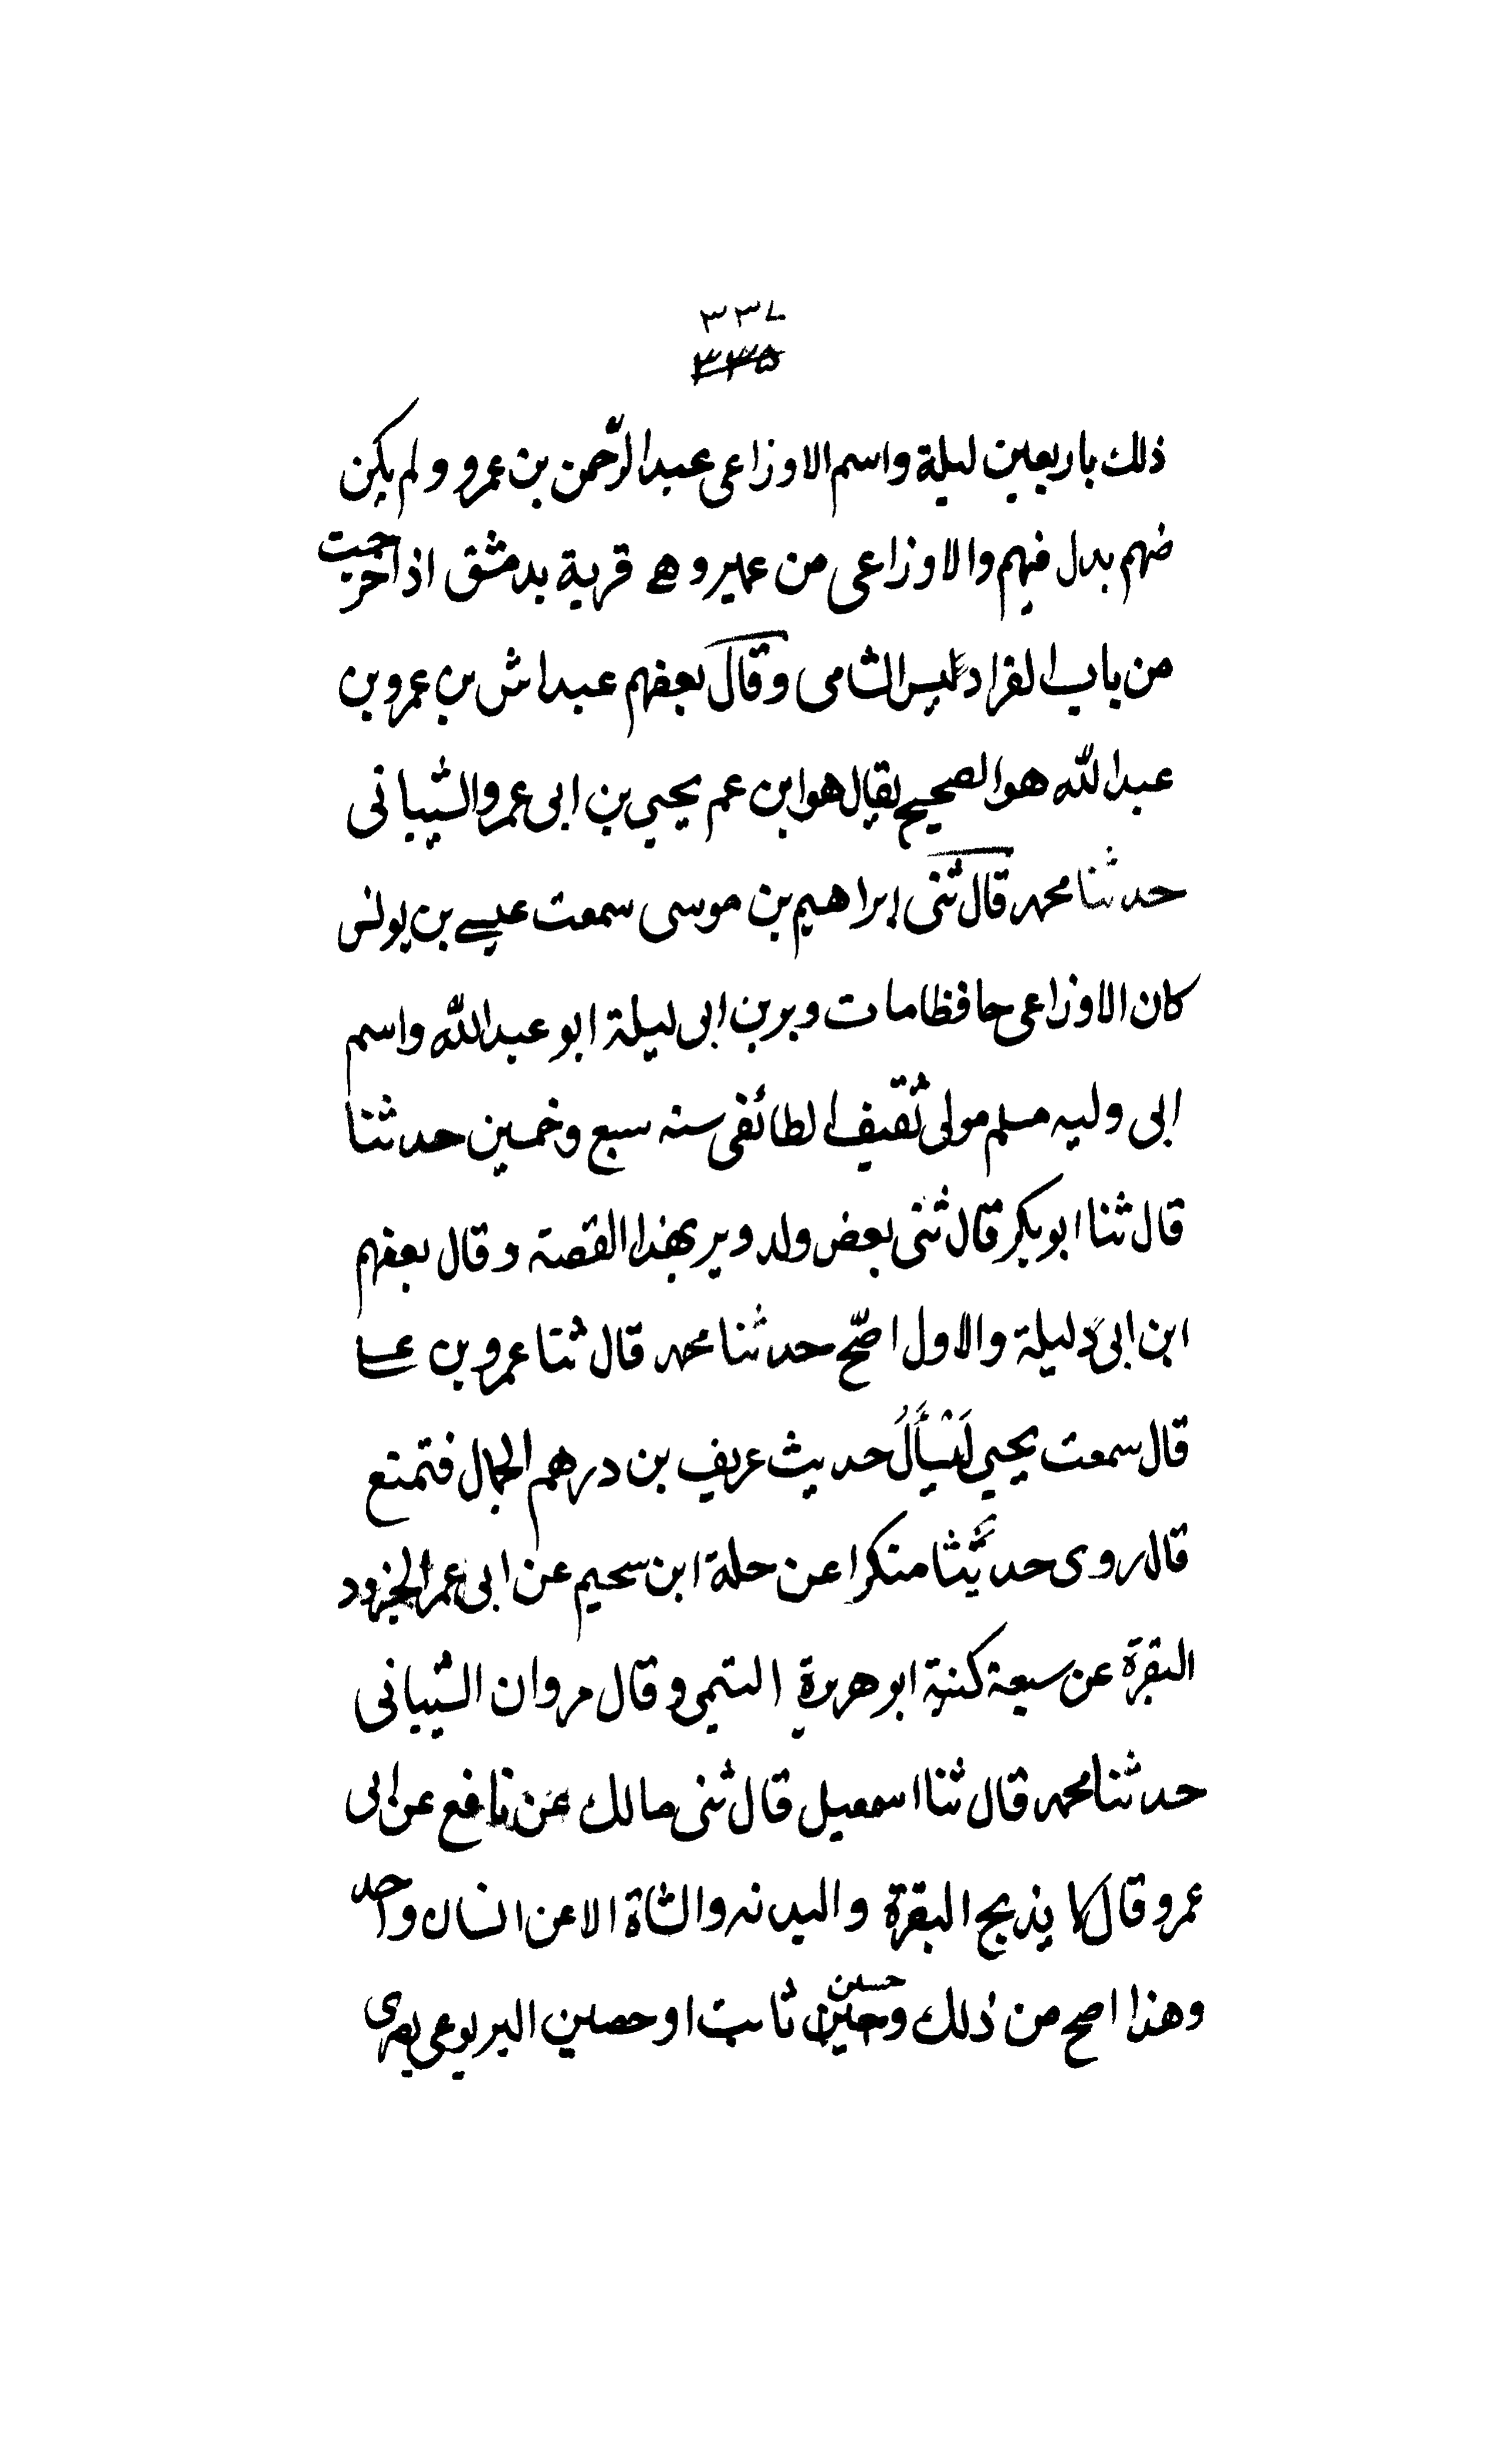 ٣٣٨
٣٣٥
ذلك باربعين ليلة واسم الاوزاعى عبد الرّحمن بن عمرو ولم يكن
منهم بدل فيهم والاوزاعى من عمير وهے قرية بدمشق اذا خرجت
من باب الفراديس الشامى وقال بعضهم عبداش بن عمرو بن
عبد الله هو الصحيح يقال هو ابن عم يحيي بن ابى عمرو الشيبانى
حدثنا محمد قال ثنى ابراهيم بن موسى سمعت عيسے بن يونس
كان الاوزاعى حافظا مات وبر بن ابى ليلة ابو عبد الله واسم
ابى وليه مسلم مولى ثقيف الطائفى سنه سبع وخمسين حدثنا
قال ثنا ابوبكر قال ثنى بعض ولد وبر بهذا القصة وقال بعضهم
ابن ابى دليلة والاول اصّح حدثنا محمد قال ثنا عمرو بن عـلـے
قال سمعت يحيي يَسْأَلُ حديث عريف بن درهم الجمال فتمتع
قال روى حديثا منكرا عن حلة ابن سحيم عن ابى عمر الجزود
البقرة عن سبعة كنية ابو هريرة التيمى وقال مروان الشيبانى
حدثنا محمد قال ثنا اسمعيل قال ثنى مالك عن نافع عن ابى
عمرو قال لا يذبح البقرة والبدنه والشاة الا عن انسان واحد
وهذا اصح من ذلك وحسين ثابت او حصين اليربوعى بصرى